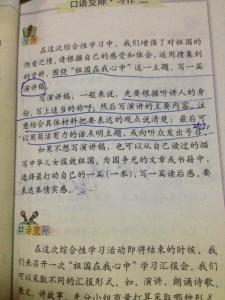 口语交际·习作二
在这次综合性学习中，我们增强了对祖国的
热爱之情。请根据自己的感受和体会，运用搜集到
的资料，围绕“祖国在我心中”这一主题，写一篇
演讲稿。
写演讲稿，一般来说，先要根据听讲人的身
份，写上适当的称呼，然后写演讲的主要内容。注
意结合具体材料把要表达的观点说清楚，最后可
以用简洁有力的话点明主题，或向听众发出号召。
如果不想写演讲稿，也可以从自己读过的描
写中华儿女报效祖国、为国争光的文章或书籍中，
选择最打动自己的一篇（一本），写一篇读后感，要
表达真情实感。
口语交际
在这次综合性学习活动即将结束的时候，我
们来召开一次“祖国在我心中”学习汇报会。我们
可以采取不同的汇报形式，如，演讲、朗诵诗歌、
散文，讲故事，先分小组商量打算采取哪种形